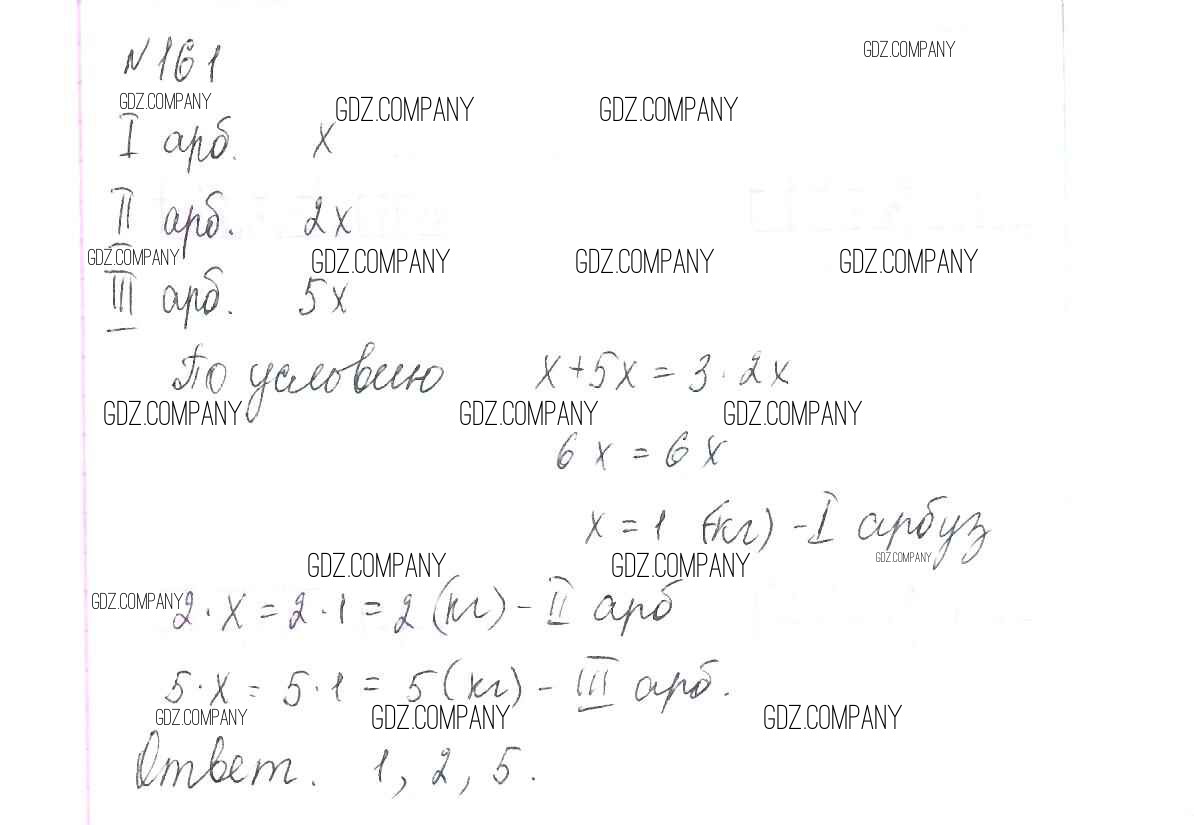 N 161
GDZ.COMPANY
GDZ.COMPANY GDZ.COMPANY GDZ.COMPANY
I арб. x
II арб. 2x
GDZ.COMPANY GDZ.COMPANY GDZ.COMPANY GDZ.COMPANY
III арб. 5x
По условию x + 5x = 3 · 2x
GDZ.COMPANY GDZ.COMPANY GDZ.COMPANY
6x = 6x
x = 1 (кг) - I арбуз
GDZ.COMPANY GDZ.COMPANY GDZ.COMPANY
GDZ.COMPANY
2 · x = 2 · 1 = 2 (кг) - II арб
5 · x = 5 · 1 = 5 (кг) - III арб.
GDZ.COMPANY GDZ.COMPANY GDZ.COMPANY
Ответ. 1, 2, 5.